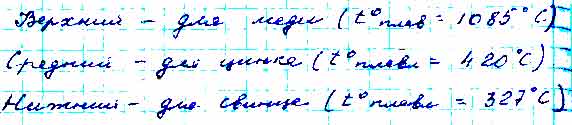 Верхний - для меди (t° плав = 1085°С)
Средний - для цинка (t° плавл = 420°С)
Нижний - для свинца (t° плавл = 327°С)